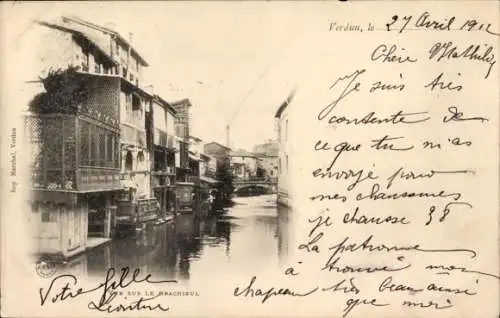 Verdun, le 27 avril 1911
Chère Mathilde
Je suis très
contente de
ce que tu m'as
envoyé pour
mes chaussures
je chausse 38
La patronne
à trouvé beau mon
chapeau très que moi
Votre fille
Léontine
VUE SUR LE BRACHIEUL
Imp Marchal, Verdun